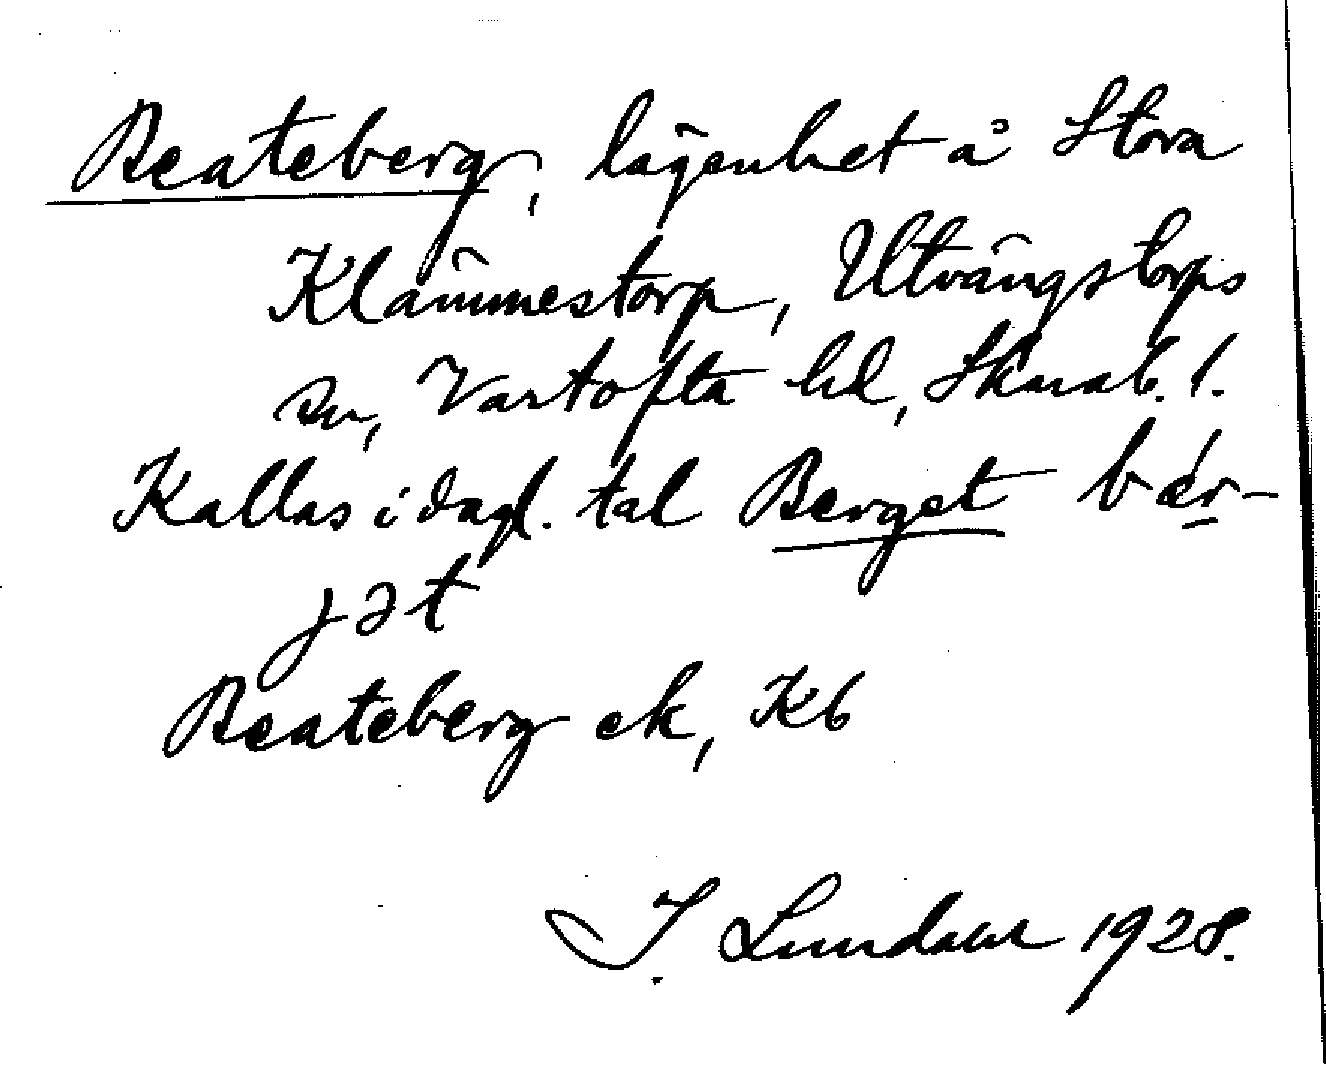 Beateberg, lägenhet å Stora
Klämmestorp, Utvängstorps
sn, Vartofta hd, Skarab. l.
Kallas i dagl. tal Berget bær-
jət
Beateberg ek, Kb
J. Lundahl 1928.